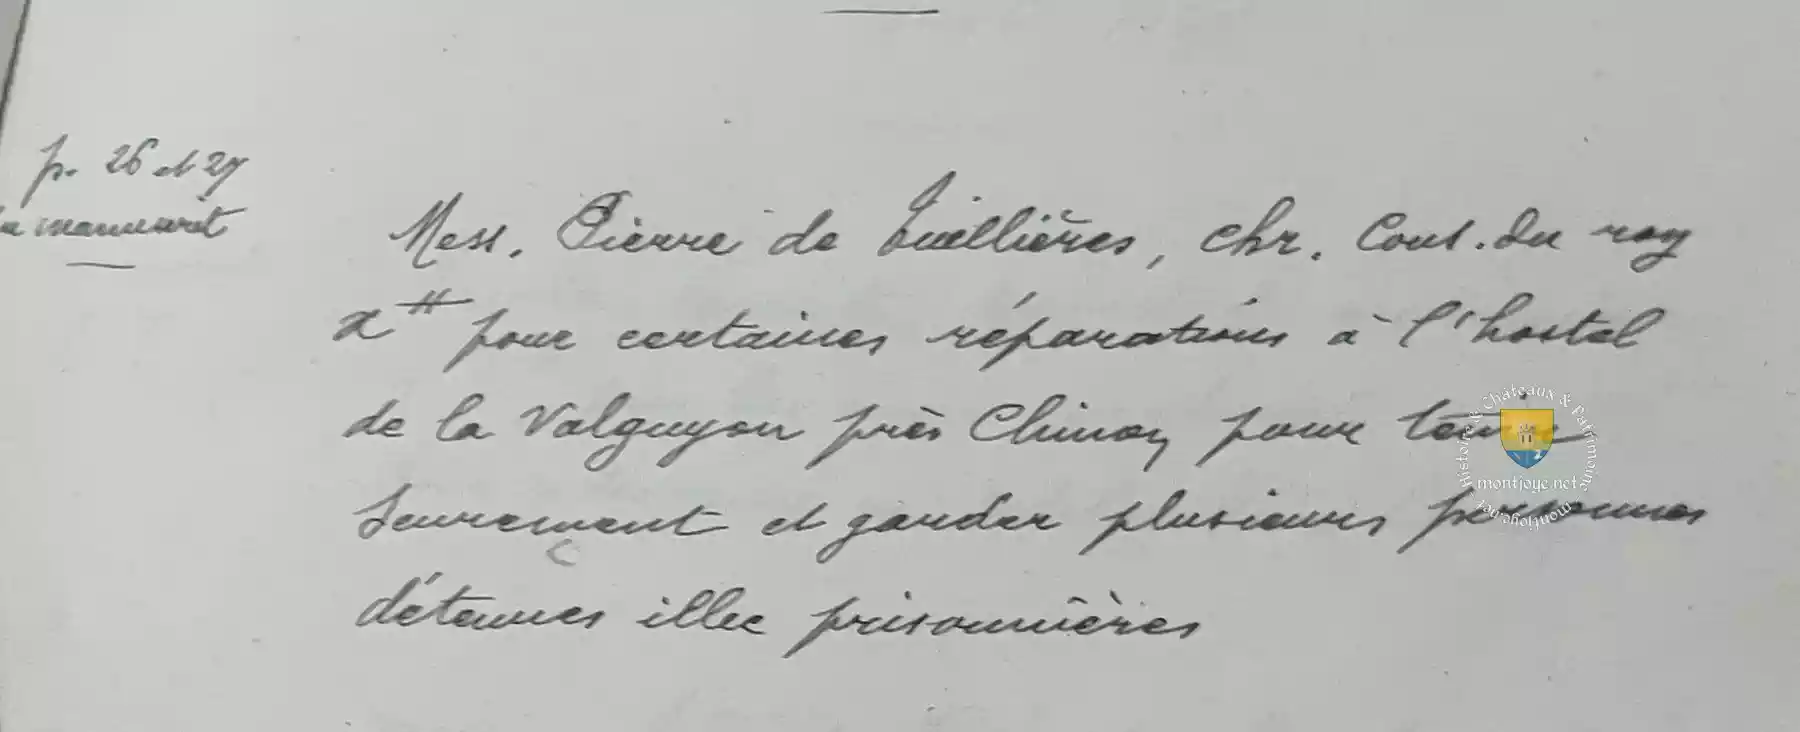 p. 26 et 27
manuscrit
Mess. Pierre de Tuillières, chr. Cons. du roy
x ₶ pour certaines réparations à l'hostel
de la Valguyon près Chinon pour tenir
seurement et garder plusieurs personnes
détenues illec prisonnières
Histoire Châteaux & Patrimoine
montjoye.net
montjoye.net